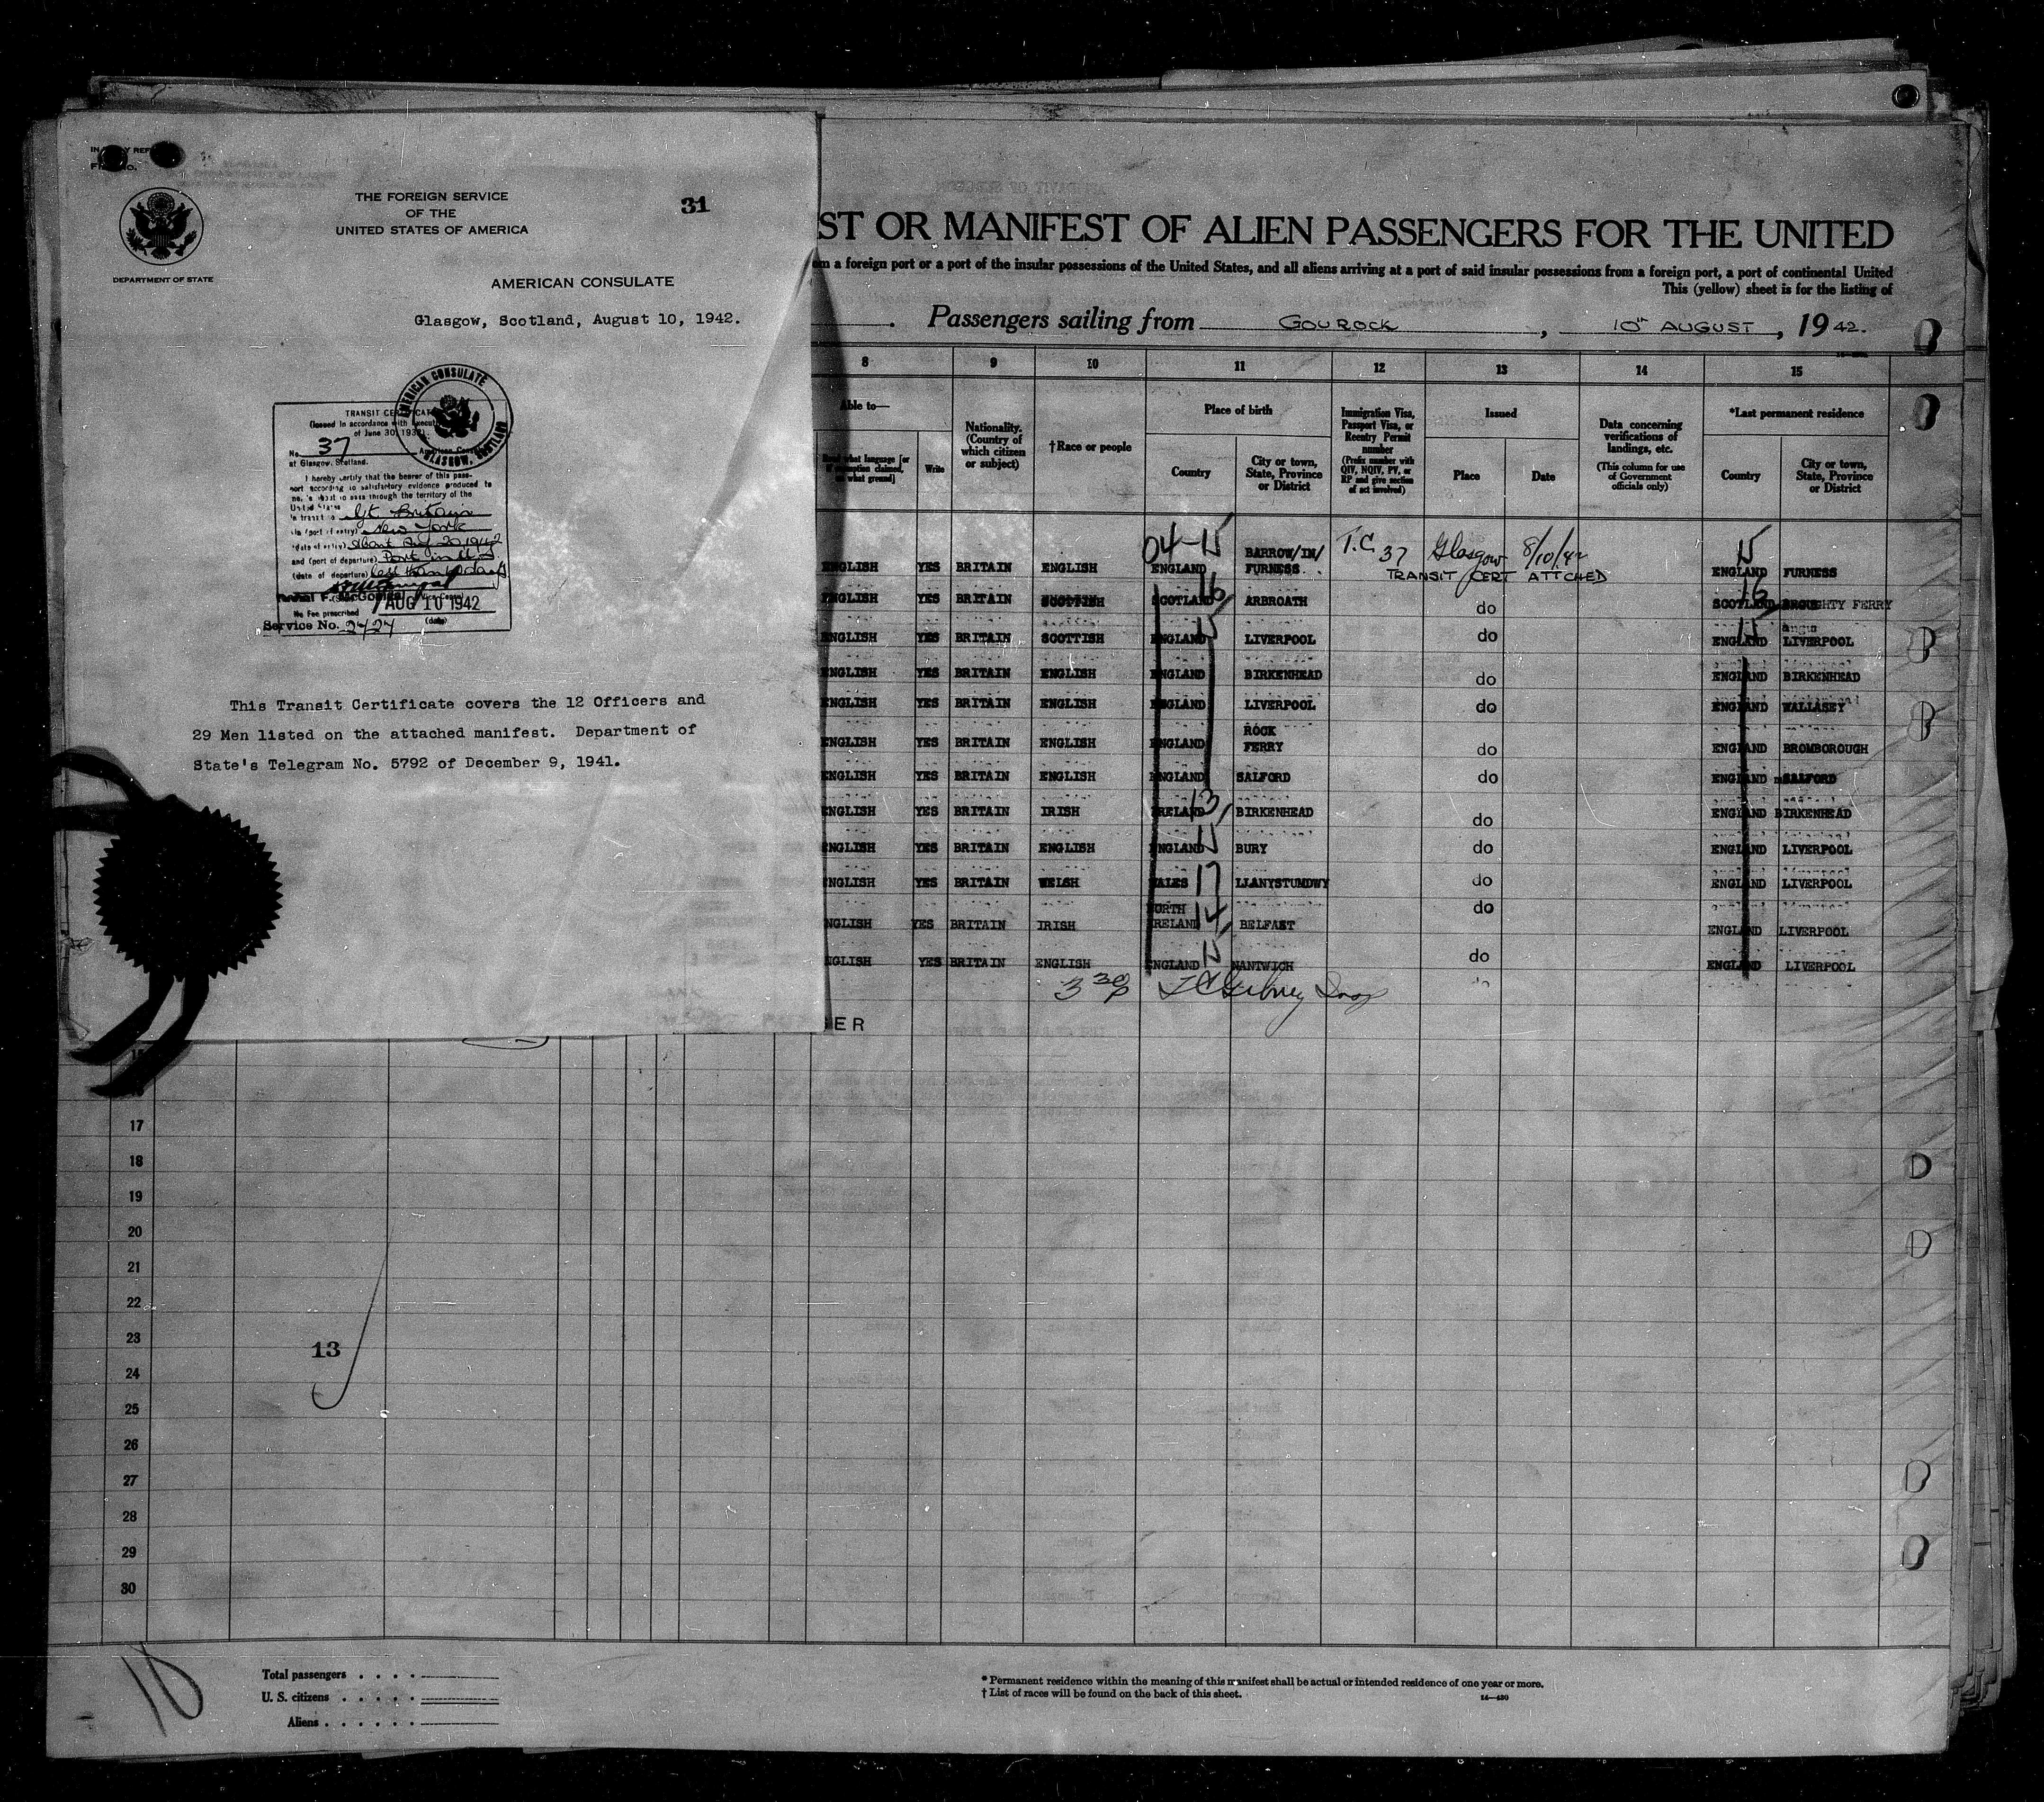 THE FOREIGN SERVICE
OF THE
UNITED STATES OF AMERICA
31
DEPARTMENT OF STATE
AMERICAN CONSULATE
Glasgow, Scotland, August 10, 1942.
AMERICAN CONSULATE
GLASGOW, SCOTLAND
TRANSIT CERTIFICAT
(Issued in accordance with Executi
of June 30, 1932).
No. 37 American Cons
at Glasgow, Scotland.
I hereby certify that the bearer of this pass-
port according to satisfactory evidence produced to
me, is about to pass through the territory of the
United States
in transit to Gt. Britain
via (port of entry) New York
(date of entry) About Aug 20 1942
and (port of departure) Port in U S
(date of departure) less than 60 days
No Fee prescribed AUG 10 1942
Service No. 2427 (date)
This Transit Certificate covers the 12 Officers and
29 Men listed on the attached manifest. Department of
State's Telegram No. 5792 of December 9, 1941.
ST OR MANIFEST OF ALIEN PASSENGERS FOR THE UNITED
om a foreign port or a port of the insular possessions of the United States, and all aliens arriving at a port of said insular possessions from a foreign port, a port of continental United
This (yellow) sheet is for the listing of
Passengers sailing from GOUROCK, 10th AUGUST, 1942.
8 9 10 11 12 13 14 15
Able to—
Read what language [or if exemption claimed, on what ground]
Write
Nationality. (Country of which citizen or subject)
†Race or people
Place of birth
Country
City or town, State, Province or District
Immigration Visa, Passport Visa, or Reentry Permit number
(Prefix number with QIV, NQIV, PV, or RP and give section of act involved)
Issued
Place
Date
Data concerning verifications of landings, etc.
(This column for use of Government officials only)
*Last permanent residence
Country
City or town, State, Province or District
04-15 T.C. 37 Glasgow 8/10/42 15
ENGLISH YES BRITAIN ENGLISH ENGLAND BARROW/IN/ FURNESS. TRANSIT CERT ATTCHED ENGLAND FURNESS
ENGLISH YES BRITAIN SCOTTISH SCOTLAND 16 ARBROATH do SCOTLAND 16 BROUGHTY FERRY
ENGLISH YES BRITAIN SCOTTISH ENGLAND 15 LIVERPOOL do ENGLAND 15 LIVERPOOL
ENGLISH YES BRITAIN ENGLISH ENGLAND BIRKENHEAD do ENGLAND BIRKENHEAD
ENGLISH YES BRITAIN ENGLISH ENGLAND LIVERPOOL do ENGLAND WALLASEY
ENGLISH YES BRITAIN ENGLISH ENGLAND ROCK FERRY do ENGLAND BROMBOROUGH
ENGLISH YES BRITAIN ENGLISH ENGLAND SALFORD do ENGLAND SALFORD
ENGLISH YES BRITAIN IRISH IRELAND 13 BIRKENHEAD do ENGLAND BIRKENHEAD
ENGLISH YES BRITAIN ENGLISH ENGLAND 15 BURY do ENGLAND LIVERPOOL
NGLISH YES BRITAIN WELSH WALES 17 LLANYSTUMDWY do ENGLAND LIVERPOOL
NGLISH YES BRITAIN IRISH NORTH IRELAND 14 BELFAST do ENGLAND LIVERPOOL
NGLISH YES BRITAIN ENGLISH ENGLAND 15 NANTWICH do ENGLAND LIVERPOOL
3 30 P
ER
17
18
19
20
21
22
23
13
24
25
26
27
28
29
30
10
Total passengers
U. S. citizens
Aliens
* Permanent residence within the meaning of this manifest shall be actual or intended residence of one year or more.
† List of races will be found on the back of this sheet.